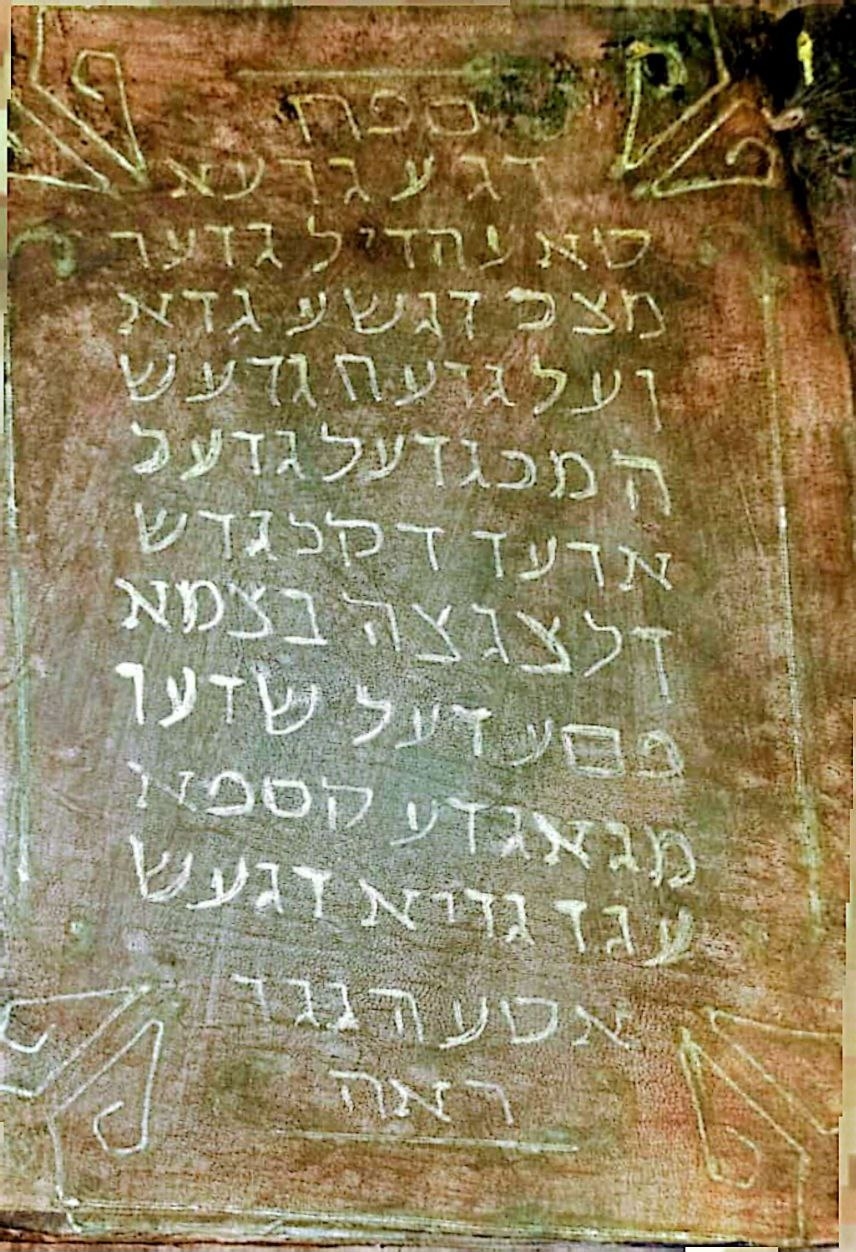 ספח
דג ע גר עא
סא עהדיל גדער
מצכ דגשע גדא
ועל גדעח גדעש
המכגדעל גדעל
ארעד דקכגדש
דלצגצה בצמא
פםע דעל שדער
מגאגדע קספא
עגד גדיא דגעש
אסעה גגד
ראה